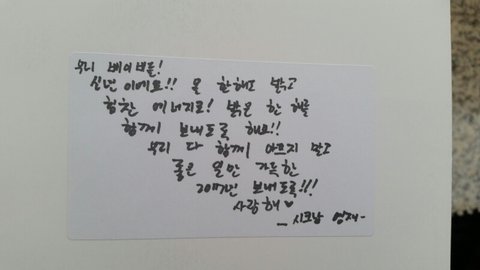 우리 베이비들!
신년이에요!! 올 한해도 밝고
힘찬 에너지로! 밝은 한 해를
함께 보내도록 해요!!
우리 다 함께 아프지 말고
좋은 일만 가득한
2017년 보내도록!!!
사랑해♥
- 시크남 영재-